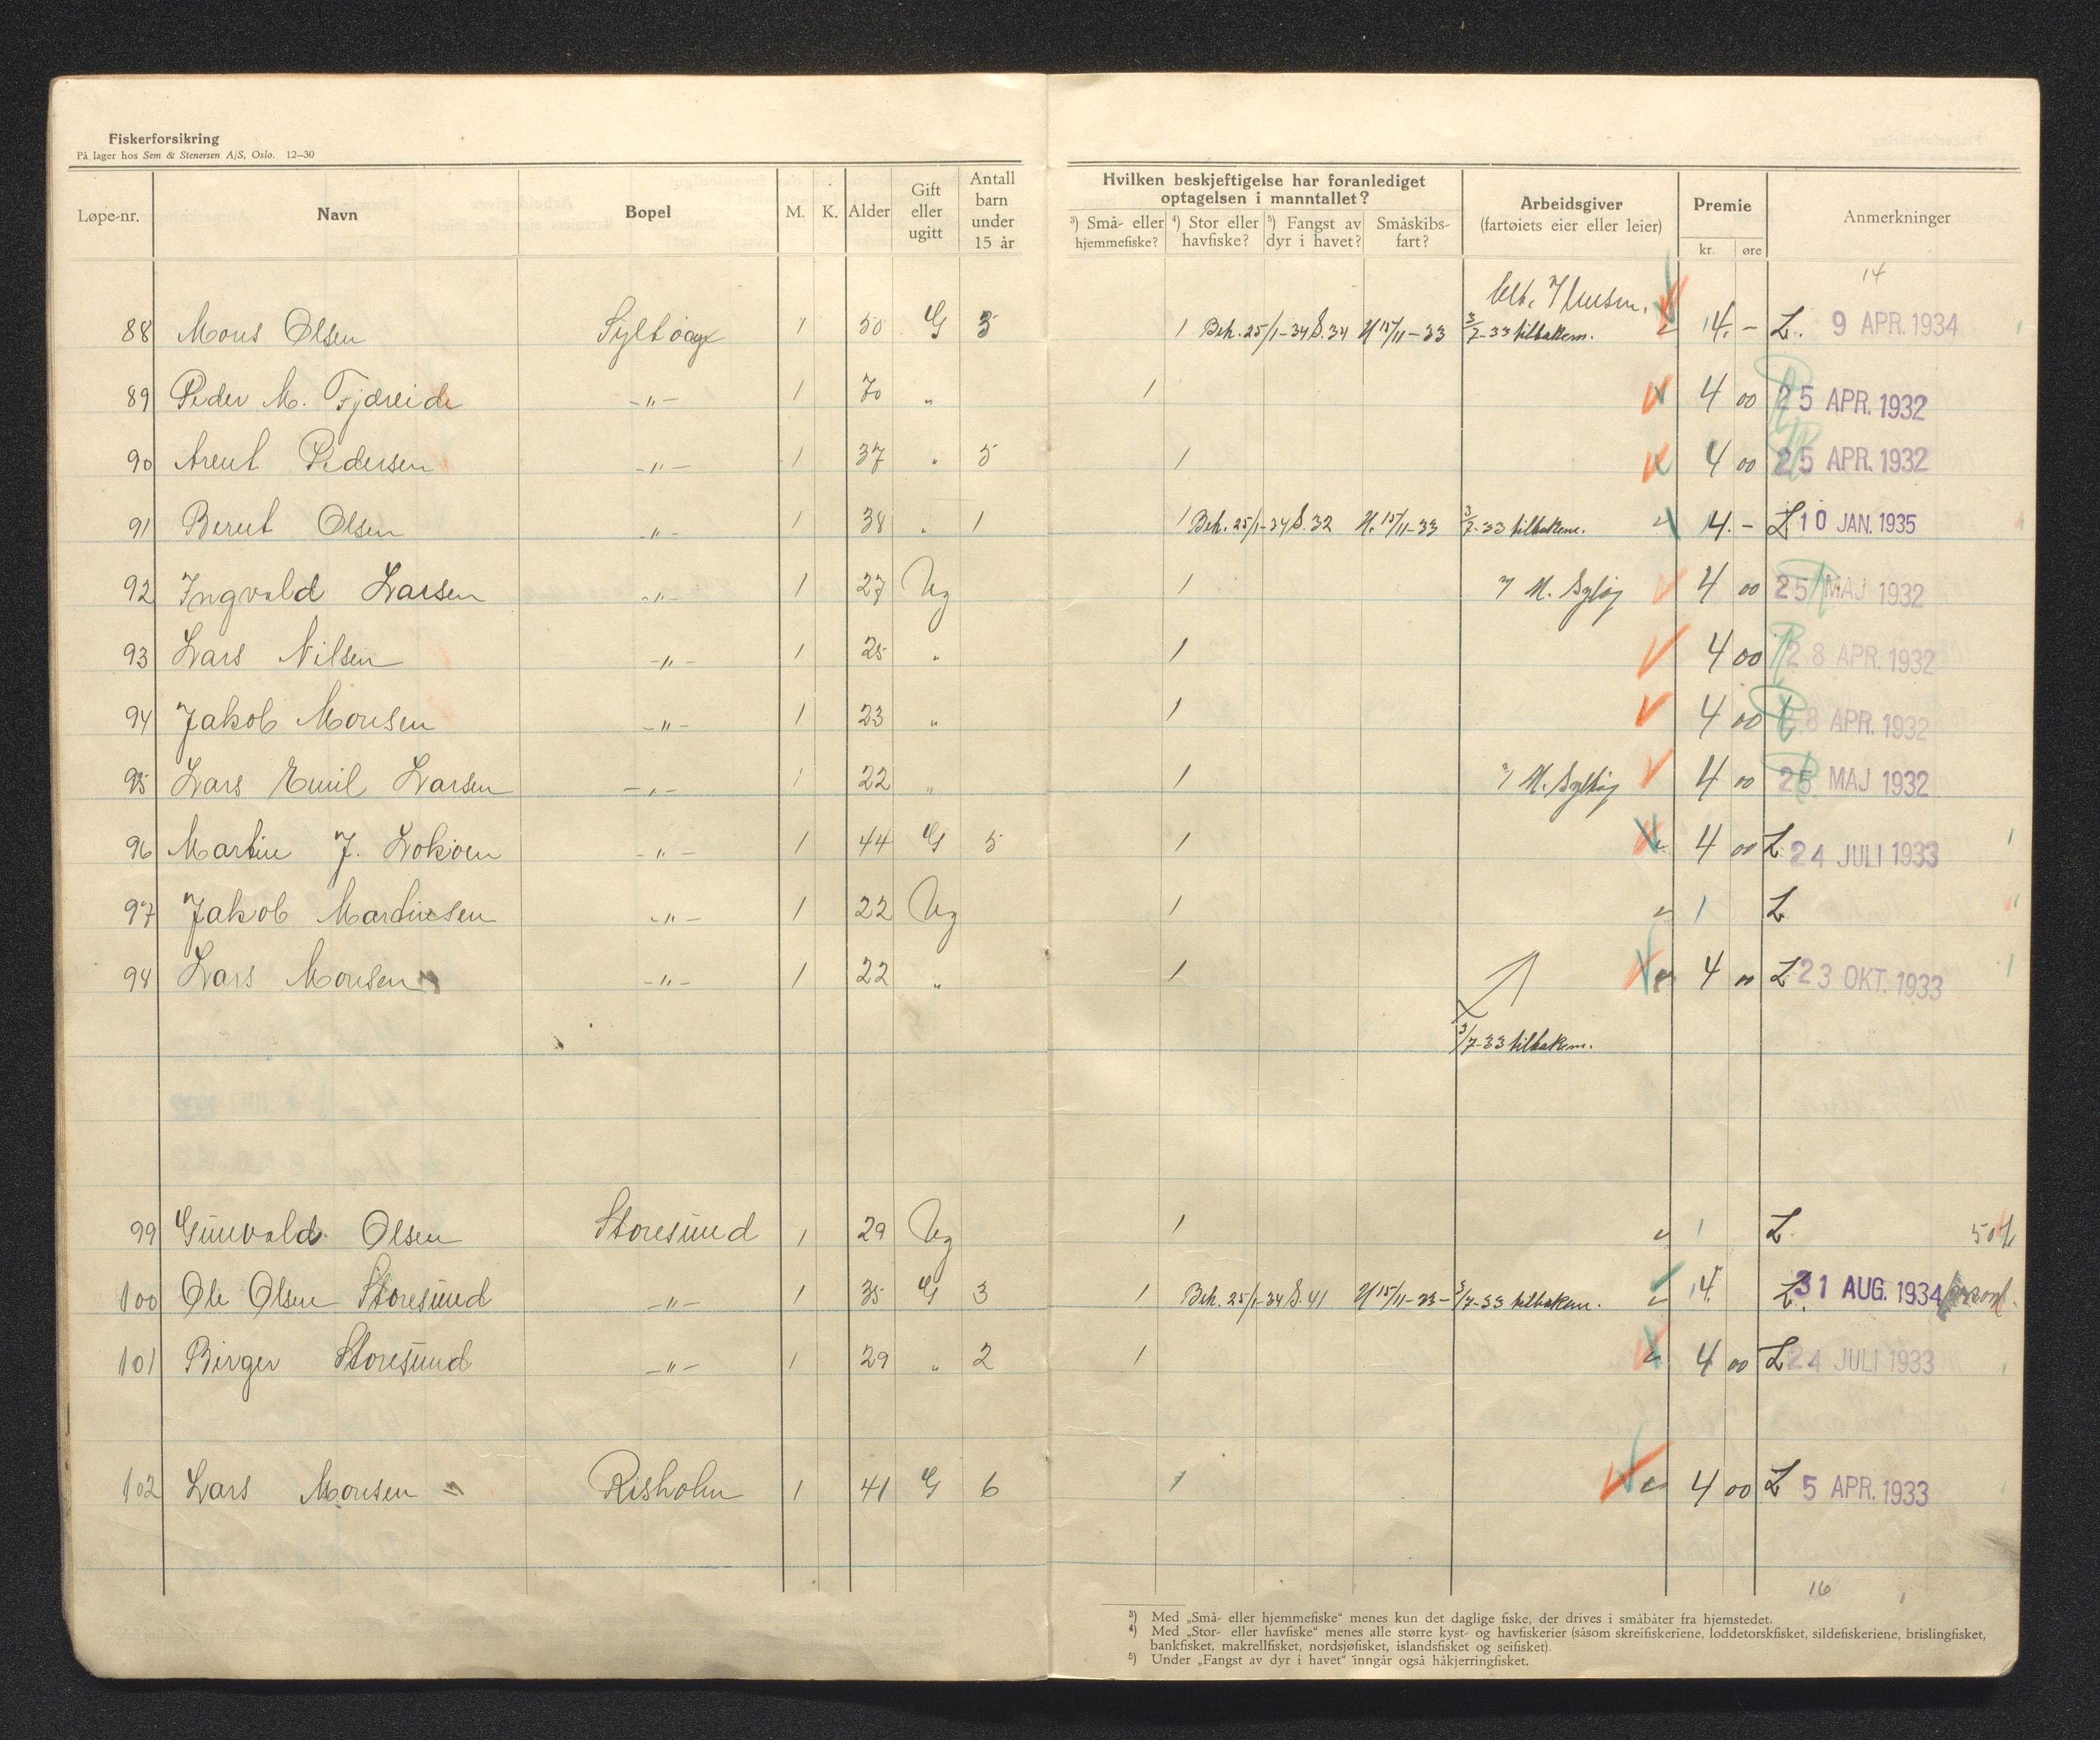 Fiskerforsikring
På lager hos Sem & Stenersen A/S, Oslo. 12–30
Løpe-nr. Navn Bopel M. K. Alder Gift eller ugitt Antall barn under 15 år
Hvilken beskjeftigelse har foranlediget optagelsen i manntallet?
³) Små- eller hjemmefiske? ⁴) Stor eller havfiske? ⁵) Fangst av dyr i havet? Småskibsfart?
Arbeidsgiver (fartøiets eier eller leier) Premie kr. øre Anmerkninger
14
88 Mons Olsen Syltøy 1 50 G 3 1 Beh. 25/1-34 S. 34 H 15/11-33 3/7-33 tilbakem. 4.- L. 9 APR. 1934
89 Peder M. Fjæreide -"- 1 70 " 1 4 00 25 APR. 1932
90 Arent Pedersen -"- 1 37 " 5 1 4 00 25 APR. 1932
91 Berent Olsen -"- 1 38 " 1 1 Beh. 25/1-34 S. 32 H. 15/11-33 3/7-33 tilbakem. 4.- L. 10 JAN. 1935
92 Ingvald Larsen -"- 1 27 Ug 1 M. Syltøy 4 00 25 MAJ 1932
93 Lars Nilsen -"- 1 25 " 1 4 00 28 APR. 1932
94 Jakob Monsen -"- 1 23 " 1 4 00 28 APR. 1932
95 Lars Emil Larsen -"- 1 22 " 1 M. Syltøy 4 00 25 MAJ 1932
96 Martin J. Lokøen -"- 1 44 G 5 1 4 00 L. 24 JULI 1933
97 Jakob Mardinsen -"- 1 22 Ug 1 1 L
98 Lars Monsen -"- 1 22 " 1 4 00 L 23 OKT. 1933
3/7-33 tilbakem.
99 Gunvald Olsen Storesund 1 29 Ug 1 1 L.
100 Ole Olsen Storesund -"- 1 35 G 3 1 Beh. 25/1-34 S. 41 H 15/11-33 - 3/7-33 tilbakem. 4. L. 31 AUG. 1934
101 Birger Storesund -"- 1 29 " 2 1 4 00 L 24 JULI 1933
102 Lars Monsen Risholm 1 41 G 6 1 4 00 L 5 APR. 1933
16
³) Med „Små- eller hjemmefiske“ menes kun det daglige fiske, der drives i småbåter fra hjemstedet.
⁴) Med „Stor- eller havfiske“ menes alle større kyst- og havfiskerier (såsom skreifiskeriene, loddetorskfisket, sildefiskeriene, brislingfisket,
bankfisket, makrellfisket, nordsjøfisket, islandsfisket og seifisket).
⁵) Under „Fangst av dyr i havet“ inngår også håkjerringfisket.